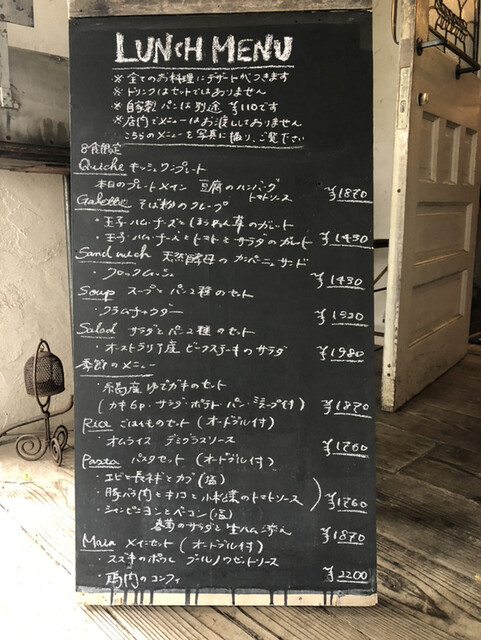 LUNCH MENU
※全てのお料理にデザートがつきます
※ドリンクはセットではありません
※自家製パンは別途 ¥110です
※店内でメニューはお渡ししておりません
こちらのメニューを写真に撮り、ご覧下さい
8食限定
Quiche キッシュワンプレート
本日のプレートメイン 豆腐のハンバーグ トマトソース ¥1870
Galette そば粉のクレープ
・玉子・ハム・チーズとほうれん草のガレット
・玉子・ハム・チーズとトマトとサラダのガレット ¥1430
Sandwich 天然酵母のカンパーニュサンド
・クロックムッシュ ¥1430
Soup スープとパン2種のセット
・クラムチャウダー ¥1320
Salad サラダとパン2種のセット
・オーストラリア産 ビーフステーキのサラダ ¥1980
季節のメニュー
・糸島産 ゆでガキのセット
(カキ6p・サラダ・ポテト・パン・ミニスープ付) ¥1870
Rice ごはんものセット(オードブル付)
・オムライス デミグラスソース ¥1760
Pasta パスタセット(オードブル付)
・エビと長ネギとカブ(塩)
・豚バラ肉とキノコと小松菜のトマトソース ¥1760
・シャンピニヨンとベーコン(塩)
春菊のサラダと生ハム添え ¥1870
Main メインセット(オードブル付)
・スズキのポワレ ブールノワゼットソース
・鴨肉のコンフィ ¥2200